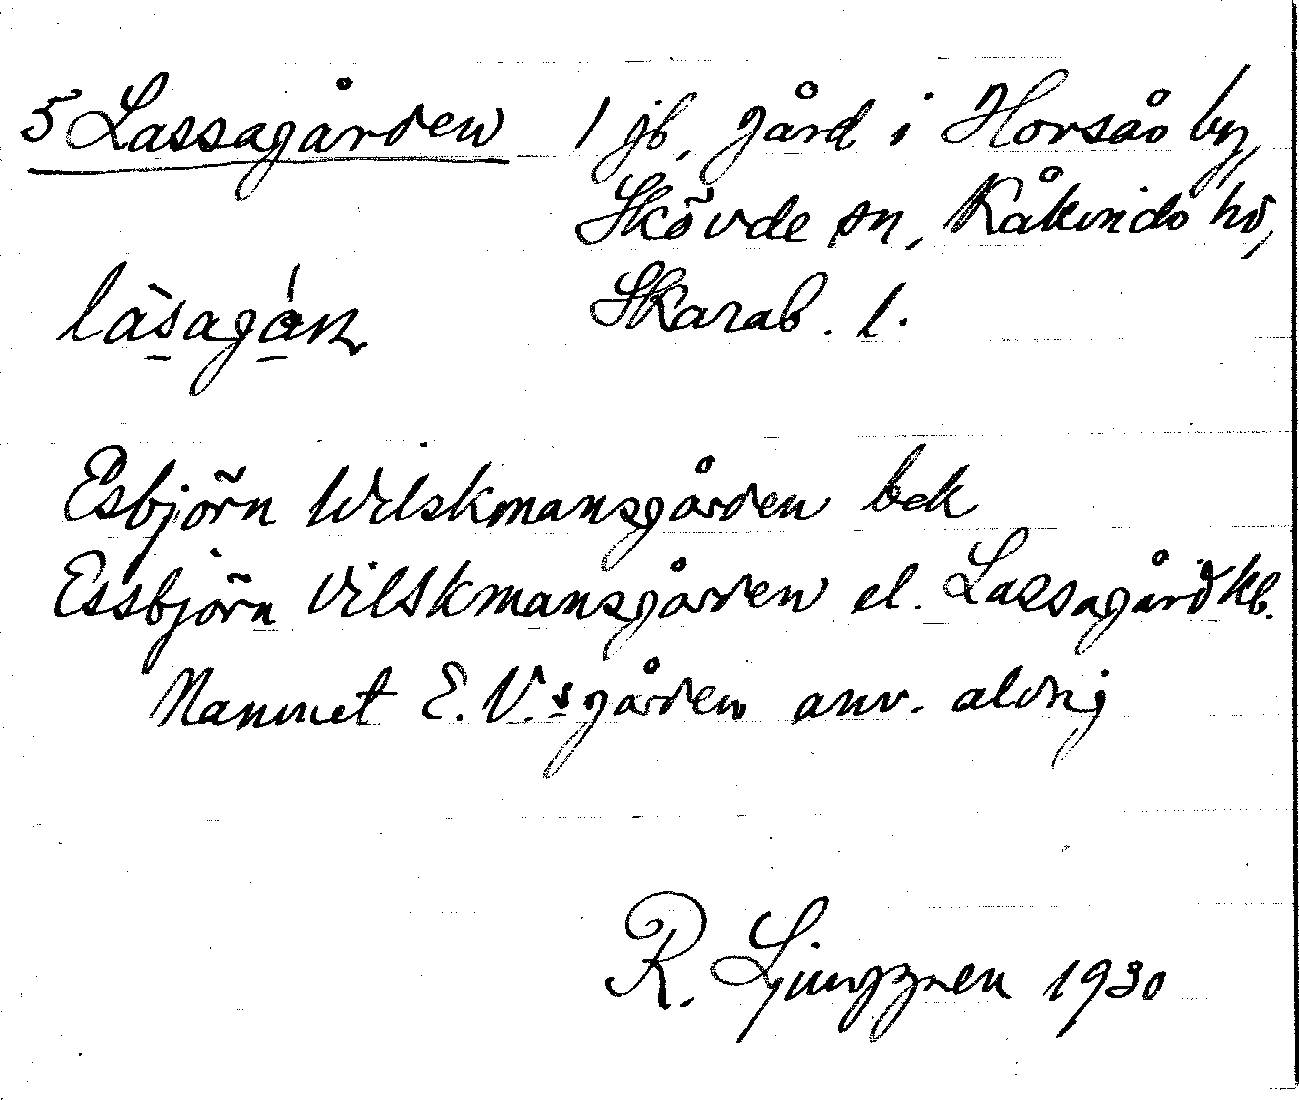 5 Lassagården 1 jb, gård i Horsås by,
Skövde sn, Kåkinds hd,
làsagán Skarab. l.
Esbjörn Wilskmansgården bek
Essbjörn Vilskmansgården el. Lassagård kb.
Namnet E. V:sgården anv. aldrig
R. Ljunggren 1930